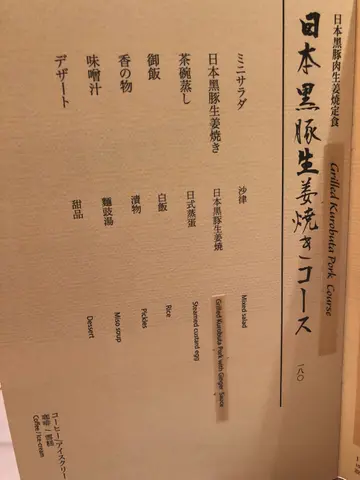 日本黒豚肉生姜焼定食
日本黒豚生姜焼きコース
Grilled Kurobuta Pork Course
一八〇
ミニサラダ
沙律
Mixed salad
日本黒豚生姜焼き
日本黒豚生姜燒
Grilled Kurobuta Pork with Ginger Sauce
茶碗蒸し
日式蒸蛋
Steamed custard egg
御飯
白飯
Rice
香の物
漬物
Pickles
味噌汁
麵豉湯
Miso soup
デザート
甜品
Dessert
コーヒー/アイスクリー
咖啡/雪糕
Coffee / Ice-cream